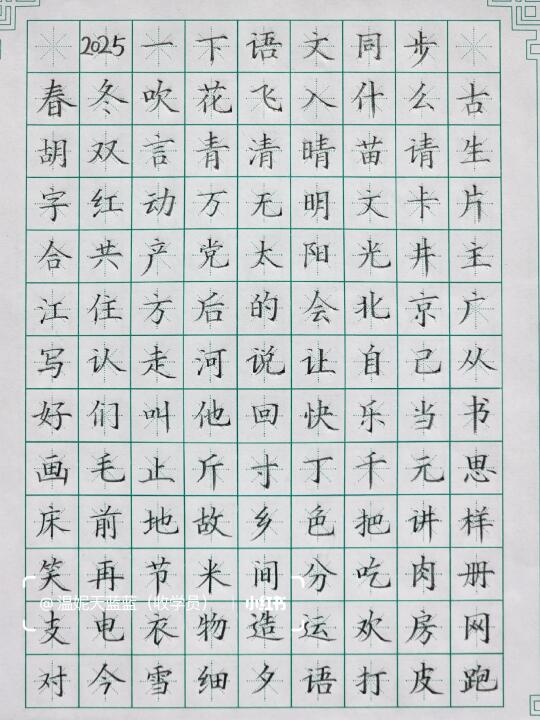 2025一下语文同步
春冬吹花飞入什么古
胡双言青清晴苗请生
字红动万无明文卡片
合共产党太阳光井主
江住方后的会北京广
写认走河说让自己从
好们叫他回快乐当书
画毛止斤寸丁千元思
床前地故乡色把讲样
笑再节米间分吃肉册
@温妮天蓝蓝（收学员） 小红书
支电衣物造运欢房网
对今雪细夕语打皮跑